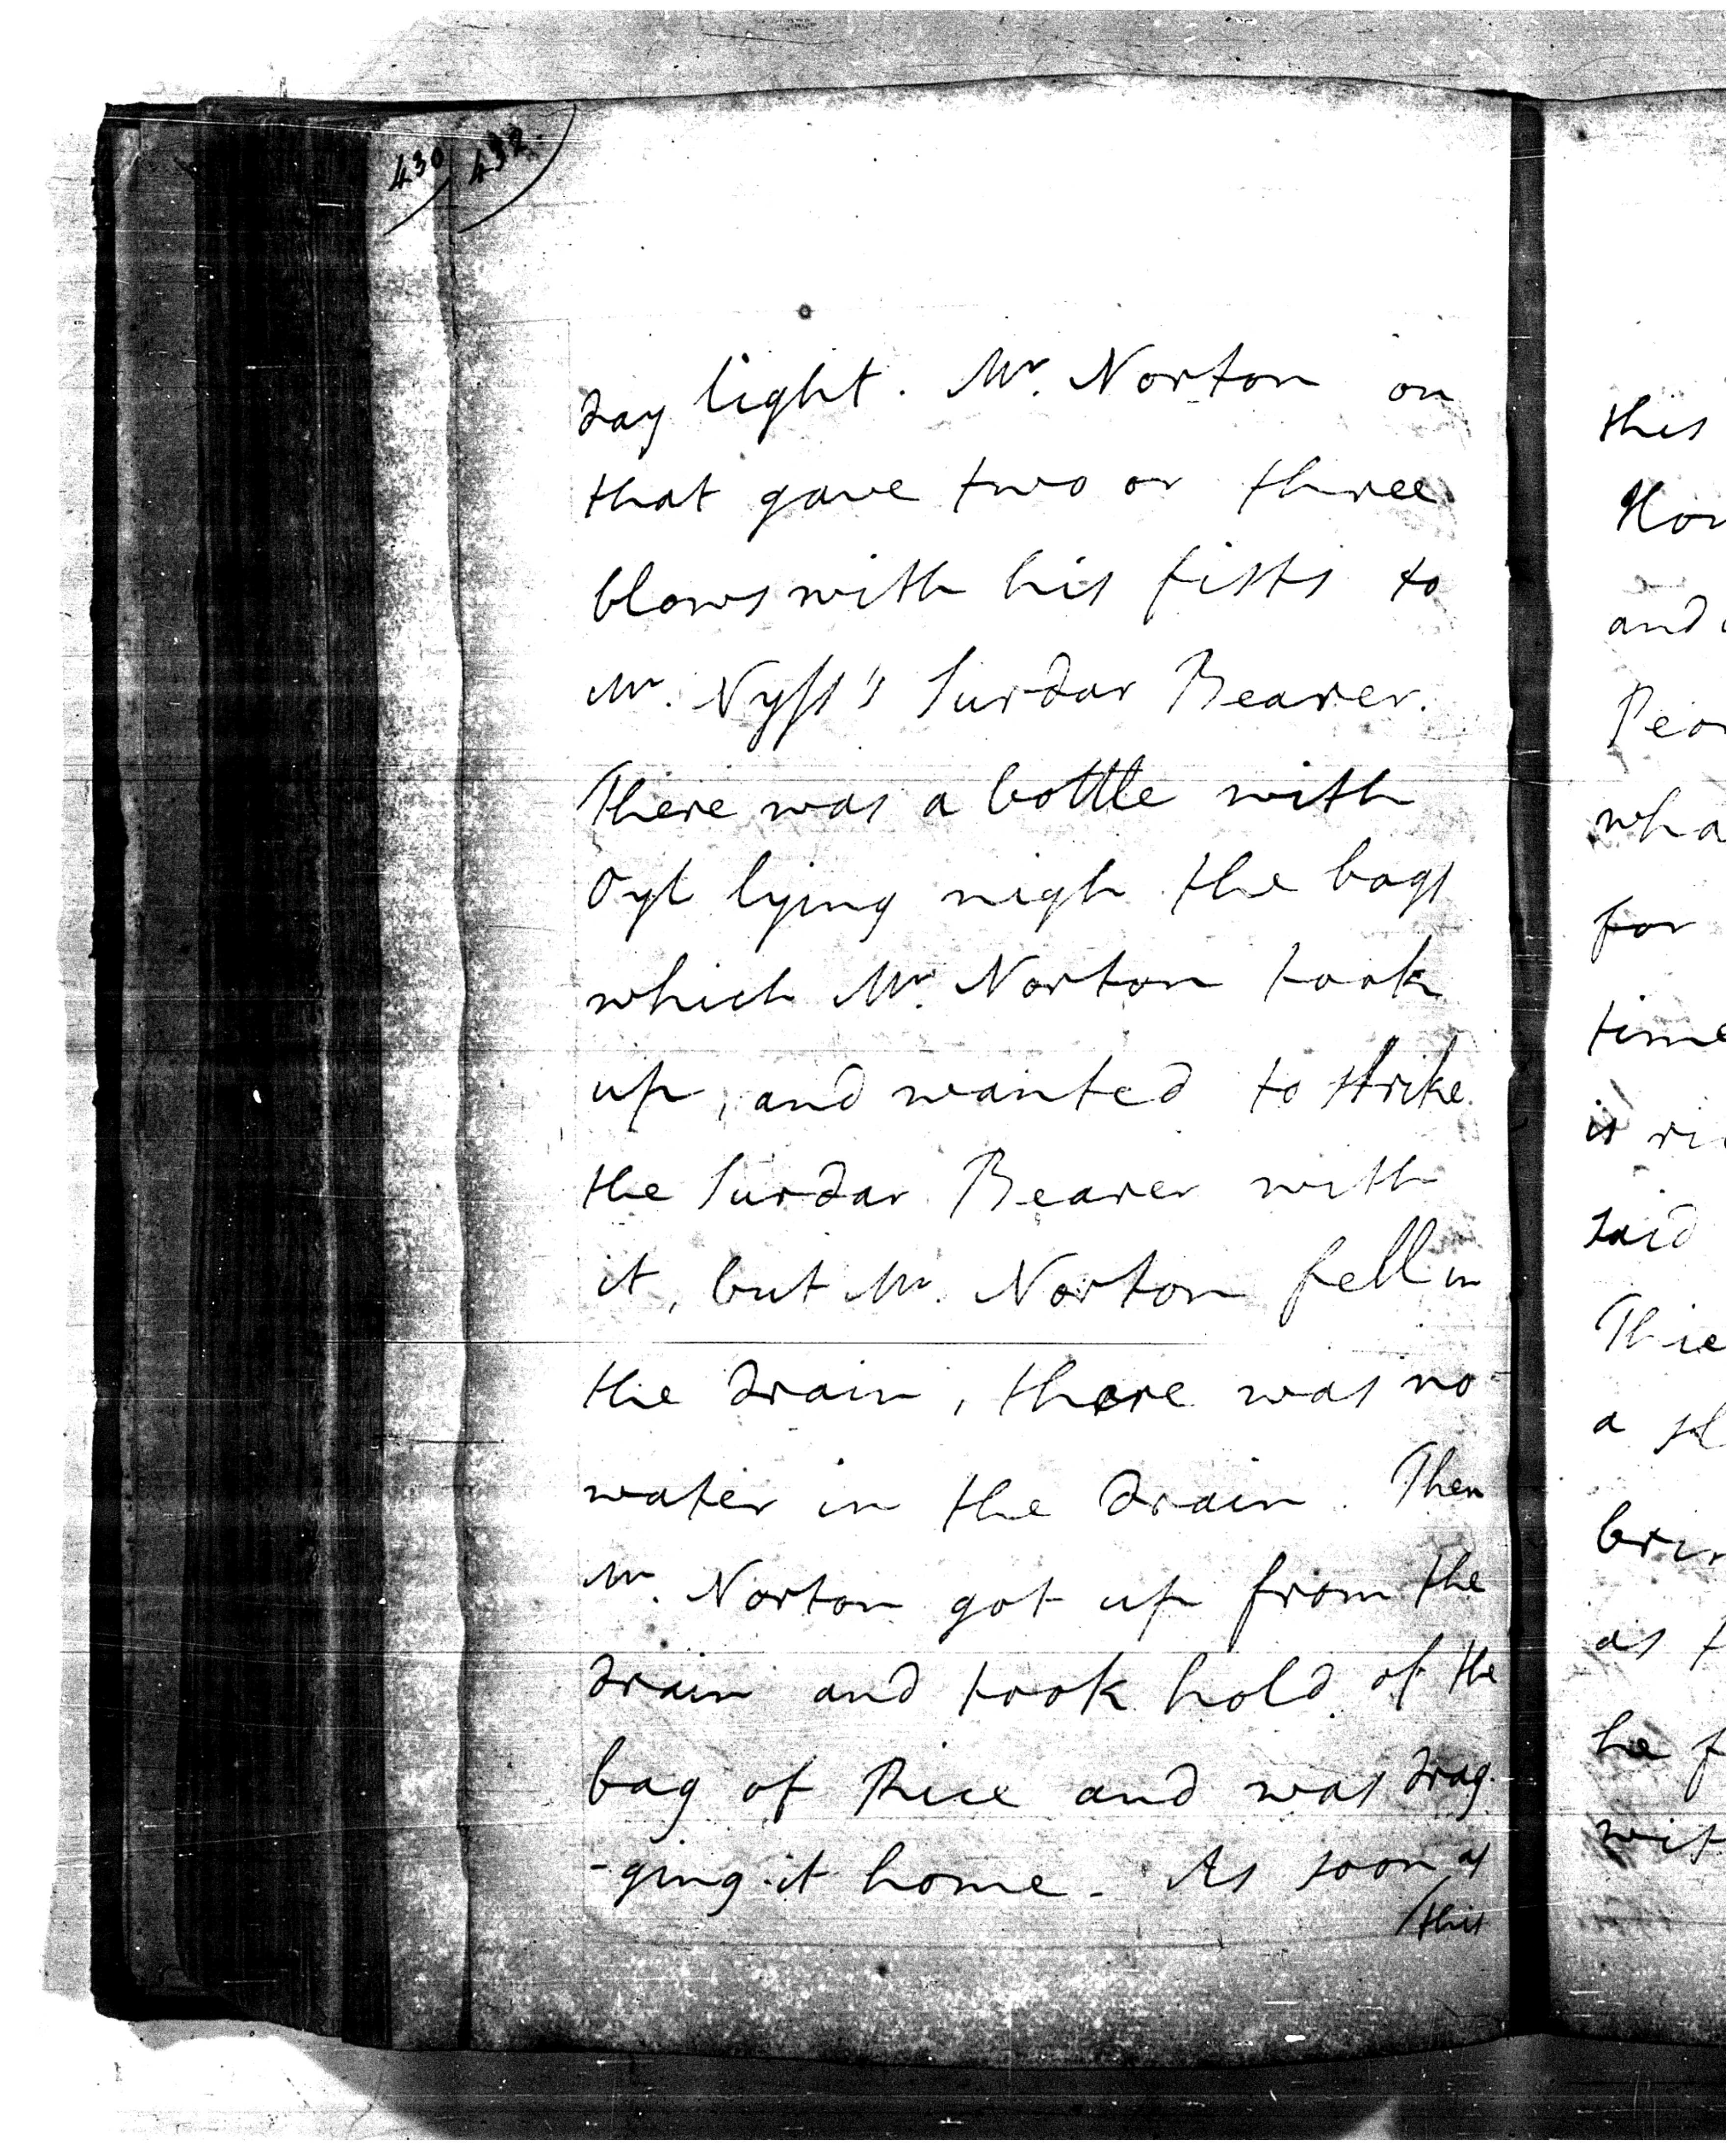 430 432
day light. Mr. Norton on
that gave two or three
blows with his fists to
Mr. Nyss's Surdar Bearer.
There was a bottle with
Oyl lying nigh the bags
which Mr. Norton took
up, and wanted to strike
the Surdar Bearer with
it, but Mr. Norton fell in
the drain, there was no
water in the drain. Then
Mr. Norton got up from the
drain and took hold of the
bag of Rice and was drag-
-ging it home. As soon as
/this
this
and
wha
for
time
is ri
said
Thie
a
brin
as t
he f
wit